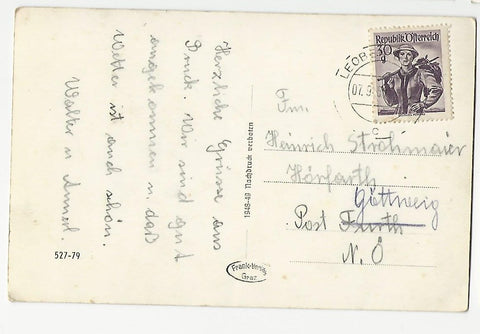 Herzliche Grüsse aus
Bruck. Wir sind gut
angekommen u. daß
Wetter ist auch schön.
Walter u Annerl.
527-79
1948-49 Nachdruck verboten
Frank-Verlag
Graz
Republik Österreich
30
g
LEOBE
07.9
c
Fm.
Heinrich Strohmaier
Hörfarth
Göttweig
Post Furth
N.Ö